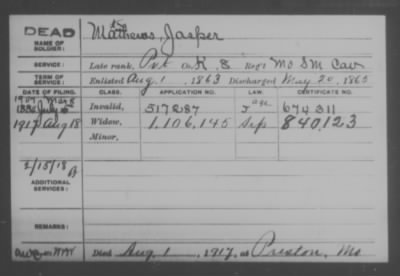 DEAD
NAME OF SOLDIER: Mathews, Jasper
SERVICE: Late rank, Pvt Co. K, 8 Reg't Mo S M Cav
TERM OF SERVICE: Enlisted Aug. 1, 1863 Discharged May 20, 1865
DATE OF FILING. CLASS. APPLICATION NO. LAW. CERTIFICATE NO.
1907 Mar 8
July Invalid, 517287 age 674311
1917 Aug 18 Widow, 1,106,145 Sep 840,123
Minor,
2/15/18
ADDITIONAL SERVICES:
REMARKS:
Died Aug 1, 1917, at Preston, Mo